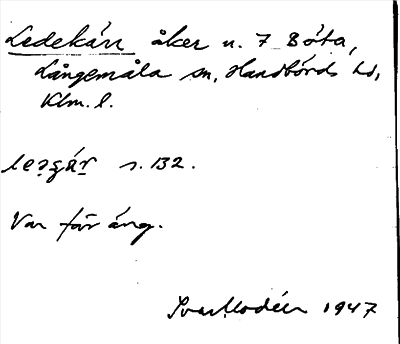 Ledekärr åker u. 7 Bōta,
Långemåla sn, Handbörds hd,
Klm. l.
s. 132.
Var förr äng.
1947